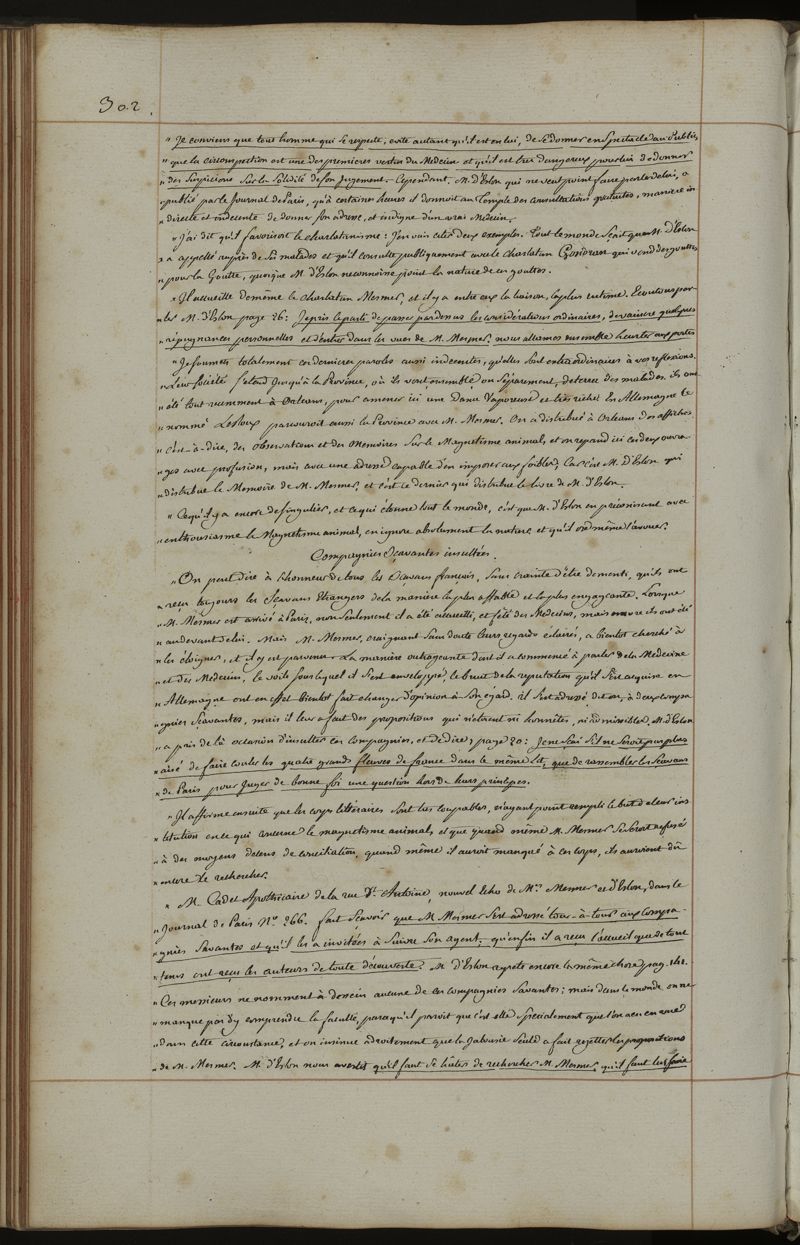 302.
" Je conviens que tout homme qui se respecte, evite autant qu'il est en lui, de se donner en Spectacle au Public,
" que la circonspection est une des premieres vertus du Medecin et qu'il est tres dangereux pour lui de donner
" des Suspicions Sur la Solidité de son Jugement. Cependant, M. d'Eslon qui ne veut point faire parler de lui, a
" publié par le Journal de Paris, qu'à certaines heures il donnoit au Temple des consultations gratuites, maniere in
" directe et indecente de donner son adresse, et indigne d'un vrai Medecin.
" J'ai dit qu'il favorisoit le charlatanisme: J'en vais citer deux exemples. Tout le monde Sçait que M. d'Eslon
" a appellé auprès de Ses malades et qu'il consulte publiquement avec le charlatan qui vend des gouttes
" pour la Goutte, quoique M. d'Eslon ne connoisse point la nature de ces gouttes.
" Il accueille de même le charlatan Mesmer, et il y a entre eux la liaison la plus intime. Ecoutons par-
" ler M. d'Eslon page 26: Je pris le parti de passer par dessus les considérations ordinaires, de vaincre quelques
" répugnances personnelles et d'entrer dans les vues de M. Mesmer, nous allames ensemble heurter aux portes
" Je soumets totalement ces dernieres paroles aussi indecentes, qu'elles Sont extraordinaires à vos reflexions.
" Leur Société S'étend Jusqu'à la Province, où ils vont ensemble ou Séparement, de trere des malades. ils ont
" été tout recemment à Orleans, pour amener ici une Dame Vaporeuse et très riche. En Allemagne le
" nommé parcouroit aussi la Province avec M. Mesmer. On a distribué à Orleans des affiches
" c'est-à-dire, des observations et des Memoires Sur le Magnetisme animal, et on repand ici ces deux ouvra-
" ges avec profusion, mais avec une adresse capable d'en imposer aux foibles, Car c'est M. D'Eslon qui
" distribue le Memoire de M. Mesmer, et c'est ce dernier qui distribue le livre de M. d'Eslon.
" Ce qu'il y a encore de singulier, et ce qui étonne tout le monde, c'est que M. d'Eslon en préconisant avec
" enthousiasme le Magnetisme animal, en ignore absolument la nature et qu'il ose même l'avouer.
Compagnies Sçavantes insultées.
" On peut dire à l'honneur de tous les Sçavans français, Sans crainte d'être dementi, qu'ils ont
" reçu toujours les Sçavans Etrangers de la manière la plus affable et la plus engageante. Lorsque
" M. Mesmer est arrivé à Paris, non Seulement il a été accueilli, et fêté des Medecins, mais encore ils ont été
" au devant de lui. Mais M. Mesmer, craignant Sans doute leurs regards éclairés, a bientot cherché à
" les éloigner, et il y est parvenu. La manière outrageante dont il a commencé à parler de la Medecine
" et des Medecins, le voile Sous lequel il S'est enveloppé, le bruit de la reputation qu'il S'est acquise en
" Allemagne ont en effet bientot fait changer d'opinion à Son égard. il S'est adressé, dit on, à deux compa
" gnies Sçavantes, mais il leur a fait des propositions qui n'étoient ni honnêtes, ni admissibles, M. d'Eslon
" a pris de là occasion d'insulter ces compagnies, et de dire, page 20: Je ne Sçai S'il ne Seroit pas plus
" aisé de faire couler les quatre grands fleuves de france dans le même lit, que de rassembler les Sçavans
" de Paris pour Juger de bonne foi une question hors de leurs principes.
" Il affirme ensuite que les corps littéraires Sont très coupables, n'ayant point rempli le but de leur ins
" titution en ce qui concerne le magnetisme animal, et que quand même M. Mesmer Se Seroit refusé
" à des moyens decens de conciliation, quand même il auroit manqué à ces corps, ils auroient dû
" encore le rechercher.
" M. Cadet Apothicaire de la rue St. Antoine, nouvel Echo de Mrs. Mesmer et d'Eslon, dans le
" Journal de Paris No. 266. fait Sçavoir que M. Mesmer S'est adressé tour-à-tour aux compa
" gnies Savantes et qu'il les a invitées à Suivre Son agent; qu'enfin il a reçu l'accueil que de tout
" tems ont reçu les auteurs de toute découverte? M. d'Eslon repete encore la même chose pag.
" Ces messieurs ne nomment à dessein aucune de ces compagnies Savantes; mais dans le monde on ne
" manque pas d'y comprendre la faculté, parce qu'il paroit que c'est elle Specialement que l'on a eu en vue
" dans cette circonstance, et on insinue adroitement que la Jalousie Seule a fait rejetter les propositions
" de M. Mesmer. M. d'Eslon nous avertit qu'il faut Se hâter de rechercher M. Mesmer, qu'il faut lui faire